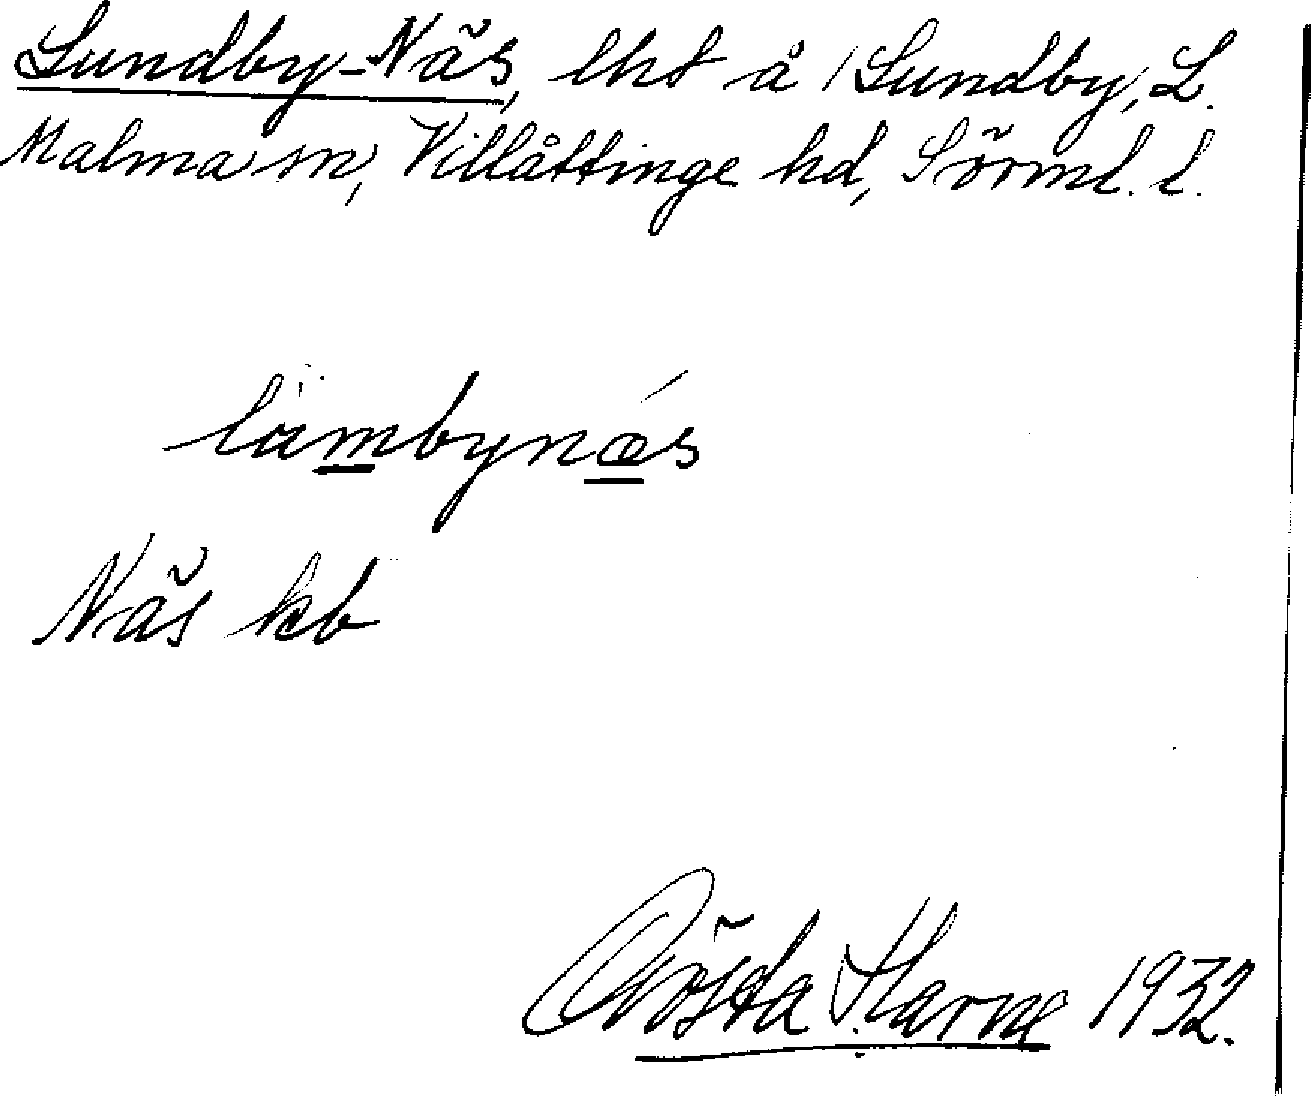 Sundby-Näs, lht å Sundby, L.
Malma sn, Villåttinge hd, Sörml. l.
lambynǽs
Näs kb
Gösta Harne 1932.